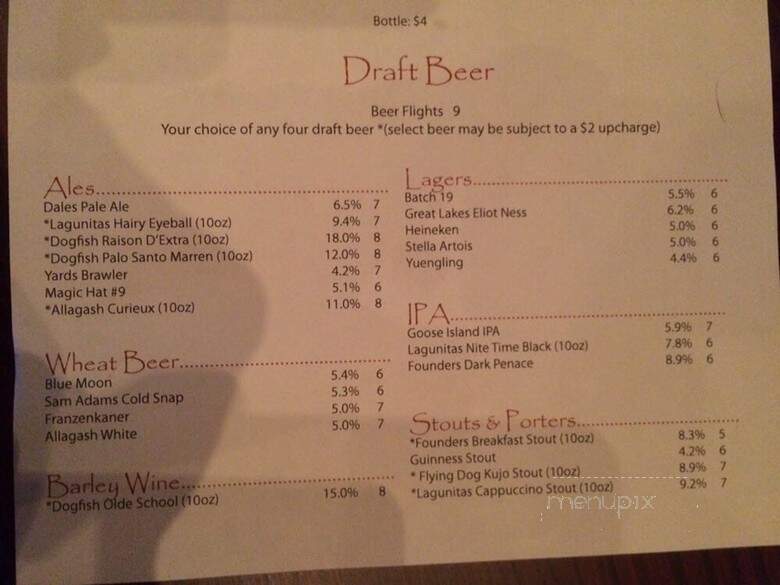 Bottle: $4
Draft Beer
Beer Flights 9
Your choice of any four draft beer *(select beer may be subject to a $2 upcharge)
Ales
Dales Pale Ale 6.5% 7
*Lagunitas Hairy Eyeball (10oz) 9.4% 7
*Dogfish Raison D'Extra (10oz) 18.0% 8
*Dogfish Palo Santo Marren (10oz) 12.0% 8
Yards Brawler 4.2% 7
Magic Hat #9 5.1% 6
*Allagash Curieux (10oz) 11.0% 8
Wheat Beer
Blue Moon 5.4% 6
Sam Adams Cold Snap 5.3% 6
Franzenkaner 5.0% 7
Allagash White 5.0% 7
Barley Wine
*Dogfish Olde School (10oz) 15.0% 8
Lagers
Batch 19 5.5% 6
Great Lakes Eliot Ness 6.2% 6
Heineken 5.0% 6
Stella Artois 5.0% 6
Yuengling 4.4% 6
IPA
Goose Island IPA 5.9% 7
Lagunitas Nite Time Black (10oz) 7.8% 6
Founders Dark Penace 8.9% 6
Stouts & Porters
*Founders Breakfast Stout (10oz) 8.3% 5
Guinness Stout 4.2% 6
* Flying Dog Kujo Stout (10oz) 8.9% 7
*Lagunitas Cappuccino Stout (10oz) 9.2% 7
menupix